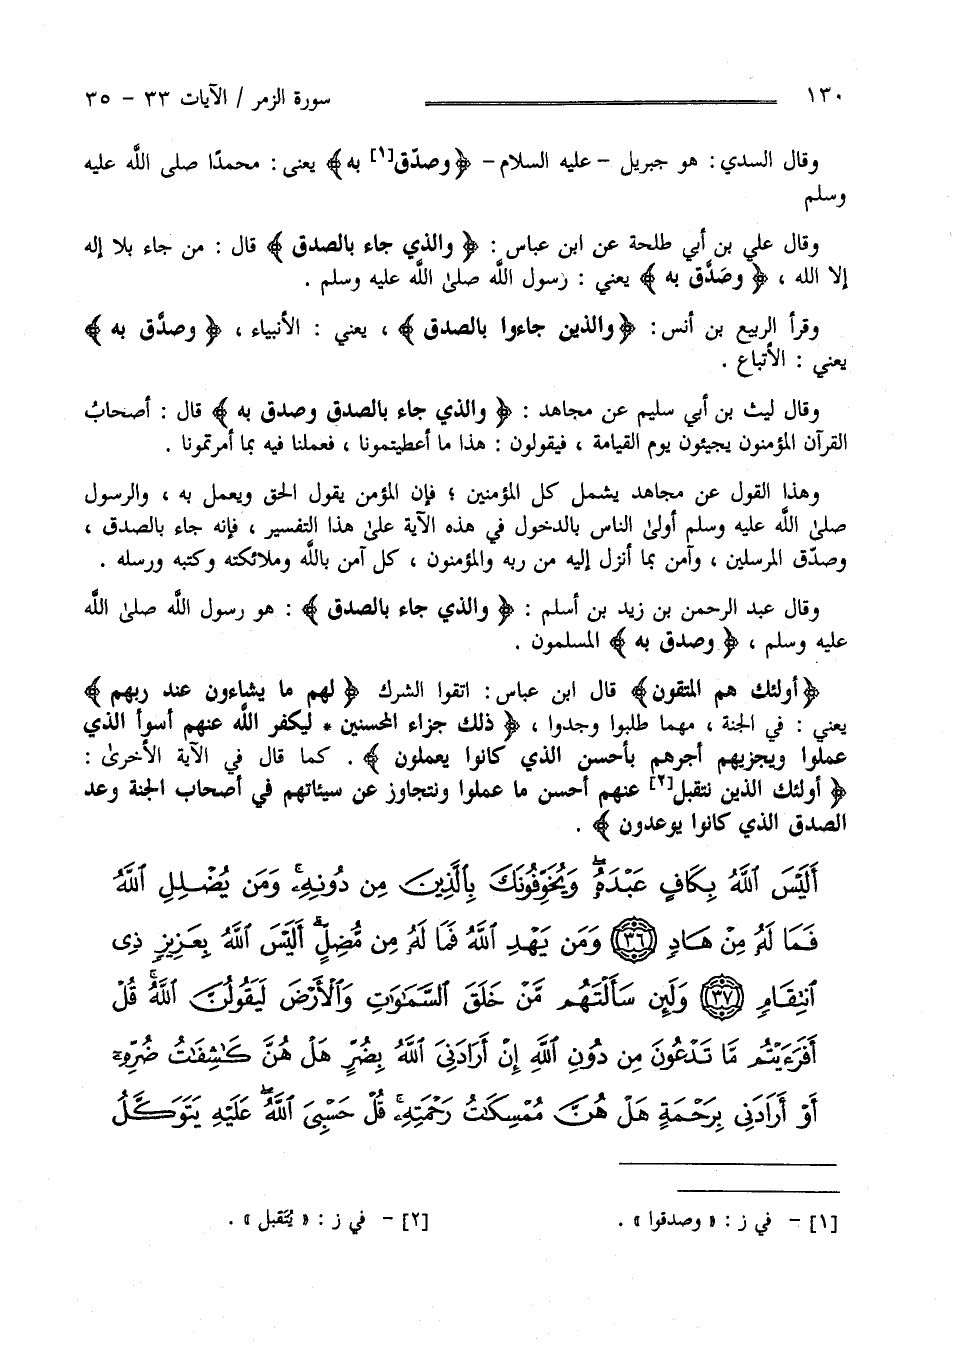 ١٣٠ سورة الزمر / الآيات ٣٣ - ٣٥
وقال السدي : هو جبريل - عليه السلام - ﴿ وصدّق[١] به ﴾ يعنى : محمدًا صلى اللَّه عليه
وسلم
وقال علي بن أبي طلحة عن ابن عباس : ﴿ والذي جاء بالصدق ﴾ قال : من جاء بلا إله
إلا الله ، ﴿ وصَدَّق به ﴾ يعني : رسول اللَّه صلىٰ اللَّه عليه وسلم .
وقرأ الربيع بن أنس : ﴿ والذين جاءوا بالصدق ﴾ ، يعني : الأنبياء ، ﴿ وصدَّق به ﴾
يعني : الأتباع .
وقال ليث بن أبي سليم عن مجاهد : ﴿ والذي جاء بالصدق وصدق به ﴾ قال : أصحابُ
القرآن المؤمنون يجيئون يوم القيامة ، فيقولون : هذا ما أعطيتمونا ، فعملنا فيه بما أمرتمونا .
وهذا القول عن مجاهد يشمل كل المؤمنين ؛ فإن المؤمن يقول الحق ويعمل به ، والرسول
صلىٰ اللَّه عليه وسلم أولىٰ الناس بالدخول في هذه الآية علىٰ هذا التفسير ، فإنه جاء بالصدق ،
وصدّق المرسلين ، وآمن بما أنزل إليه من ربه والمؤمنون ، كل آمن باللَّه وملائكته وكتبه ورسله .
وقال عبد الرحمن بن زيد بن أسلم : ﴿ والذي جاء بالصدق ﴾ : هو رسول اللَّه صلىٰ اللَّه
عليه وسلم ، ﴿ وصدق به ﴾ المسلمون .
﴿ أولئك هم المتقون ﴾ قال ابن عباس : اتقوا الشرك ﴿ لهم ما يشاءون عند ربهم ﴾
يعني : في الجنة ، مهما طلبوا وجدوا ، ﴿ ذلك جزاء المحسنين * ليكفر اللَّه عنهم أسوأ الذي
عملوا ويجزيهم أجرهم بأحسن الذي كانوا يعملون ﴾ . كما قال في الآية الأخرىٰ :
﴿ أولئك الذين نتقبل[٢] عنهم أحسن ما عملوا ونتجاوز عن سيئاتهم في أصحاب الجنة وعد
الصدق الذي كانوا يوعدون ﴾ .
أَلَيْسَ ٱللَّهُ بِكَافٍ عَبْدَهُۥۖ وَيُخَوِّفُونَكَ بِٱلَّذِينَ مِن دُونِهِۦۚ وَمَن يُضْلِلِ ٱللَّهُ
فَمَا لَهُۥ مِنْ هَادٍ ﴿٣٦﴾ وَمَن يَهْدِ ٱللَّهُ فَمَا لَهُۥ مِن مُّضِلٍّۗ أَلَيْسَ ٱللَّهُ بِعَزِيزٍ ذِى
ٱنتِقَامٍ ﴿٣٧﴾ وَلَئِن سَأَلْتَهُم مَّنْ خَلَقَ ٱلسَّمَٰوَٰتِ وَٱلْأَرْضَ لَيَقُولُنَّ ٱللَّهُۚ قُلْ
أَفَرَءَيْتُم مَّا تَدْعُونَ مِن دُونِ ٱللَّهِ إِنْ أَرَادَنِىَ ٱللَّهُ بِضُرٍّ هَلْ هُنَّ كَٰشِفَٰتُ ضُرِّهِۦٓ
أَوْ أَرَادَنِى بِرَحْمَةٍ هَلْ هُنَّ مُمْسِكَٰتُ رَحْمَتِهِۦۚ قُلْ حَسْبِىَ ٱللَّهُۖ عَلَيْهِ يَتَوَكَّلُ
[١] - في ز : « وصدقوا » . [٢] - في ز : « يُتَقبل » .